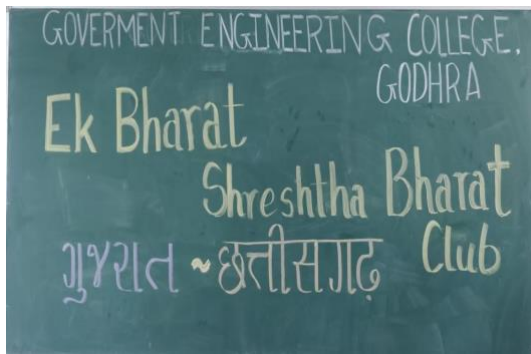 GOVERMENT ENGINEERING COLLEGE,
GODHRA
Ek Bharat
Shreshtha Bharat
Club
ગુજરાત ~ छत्तीसगढ़